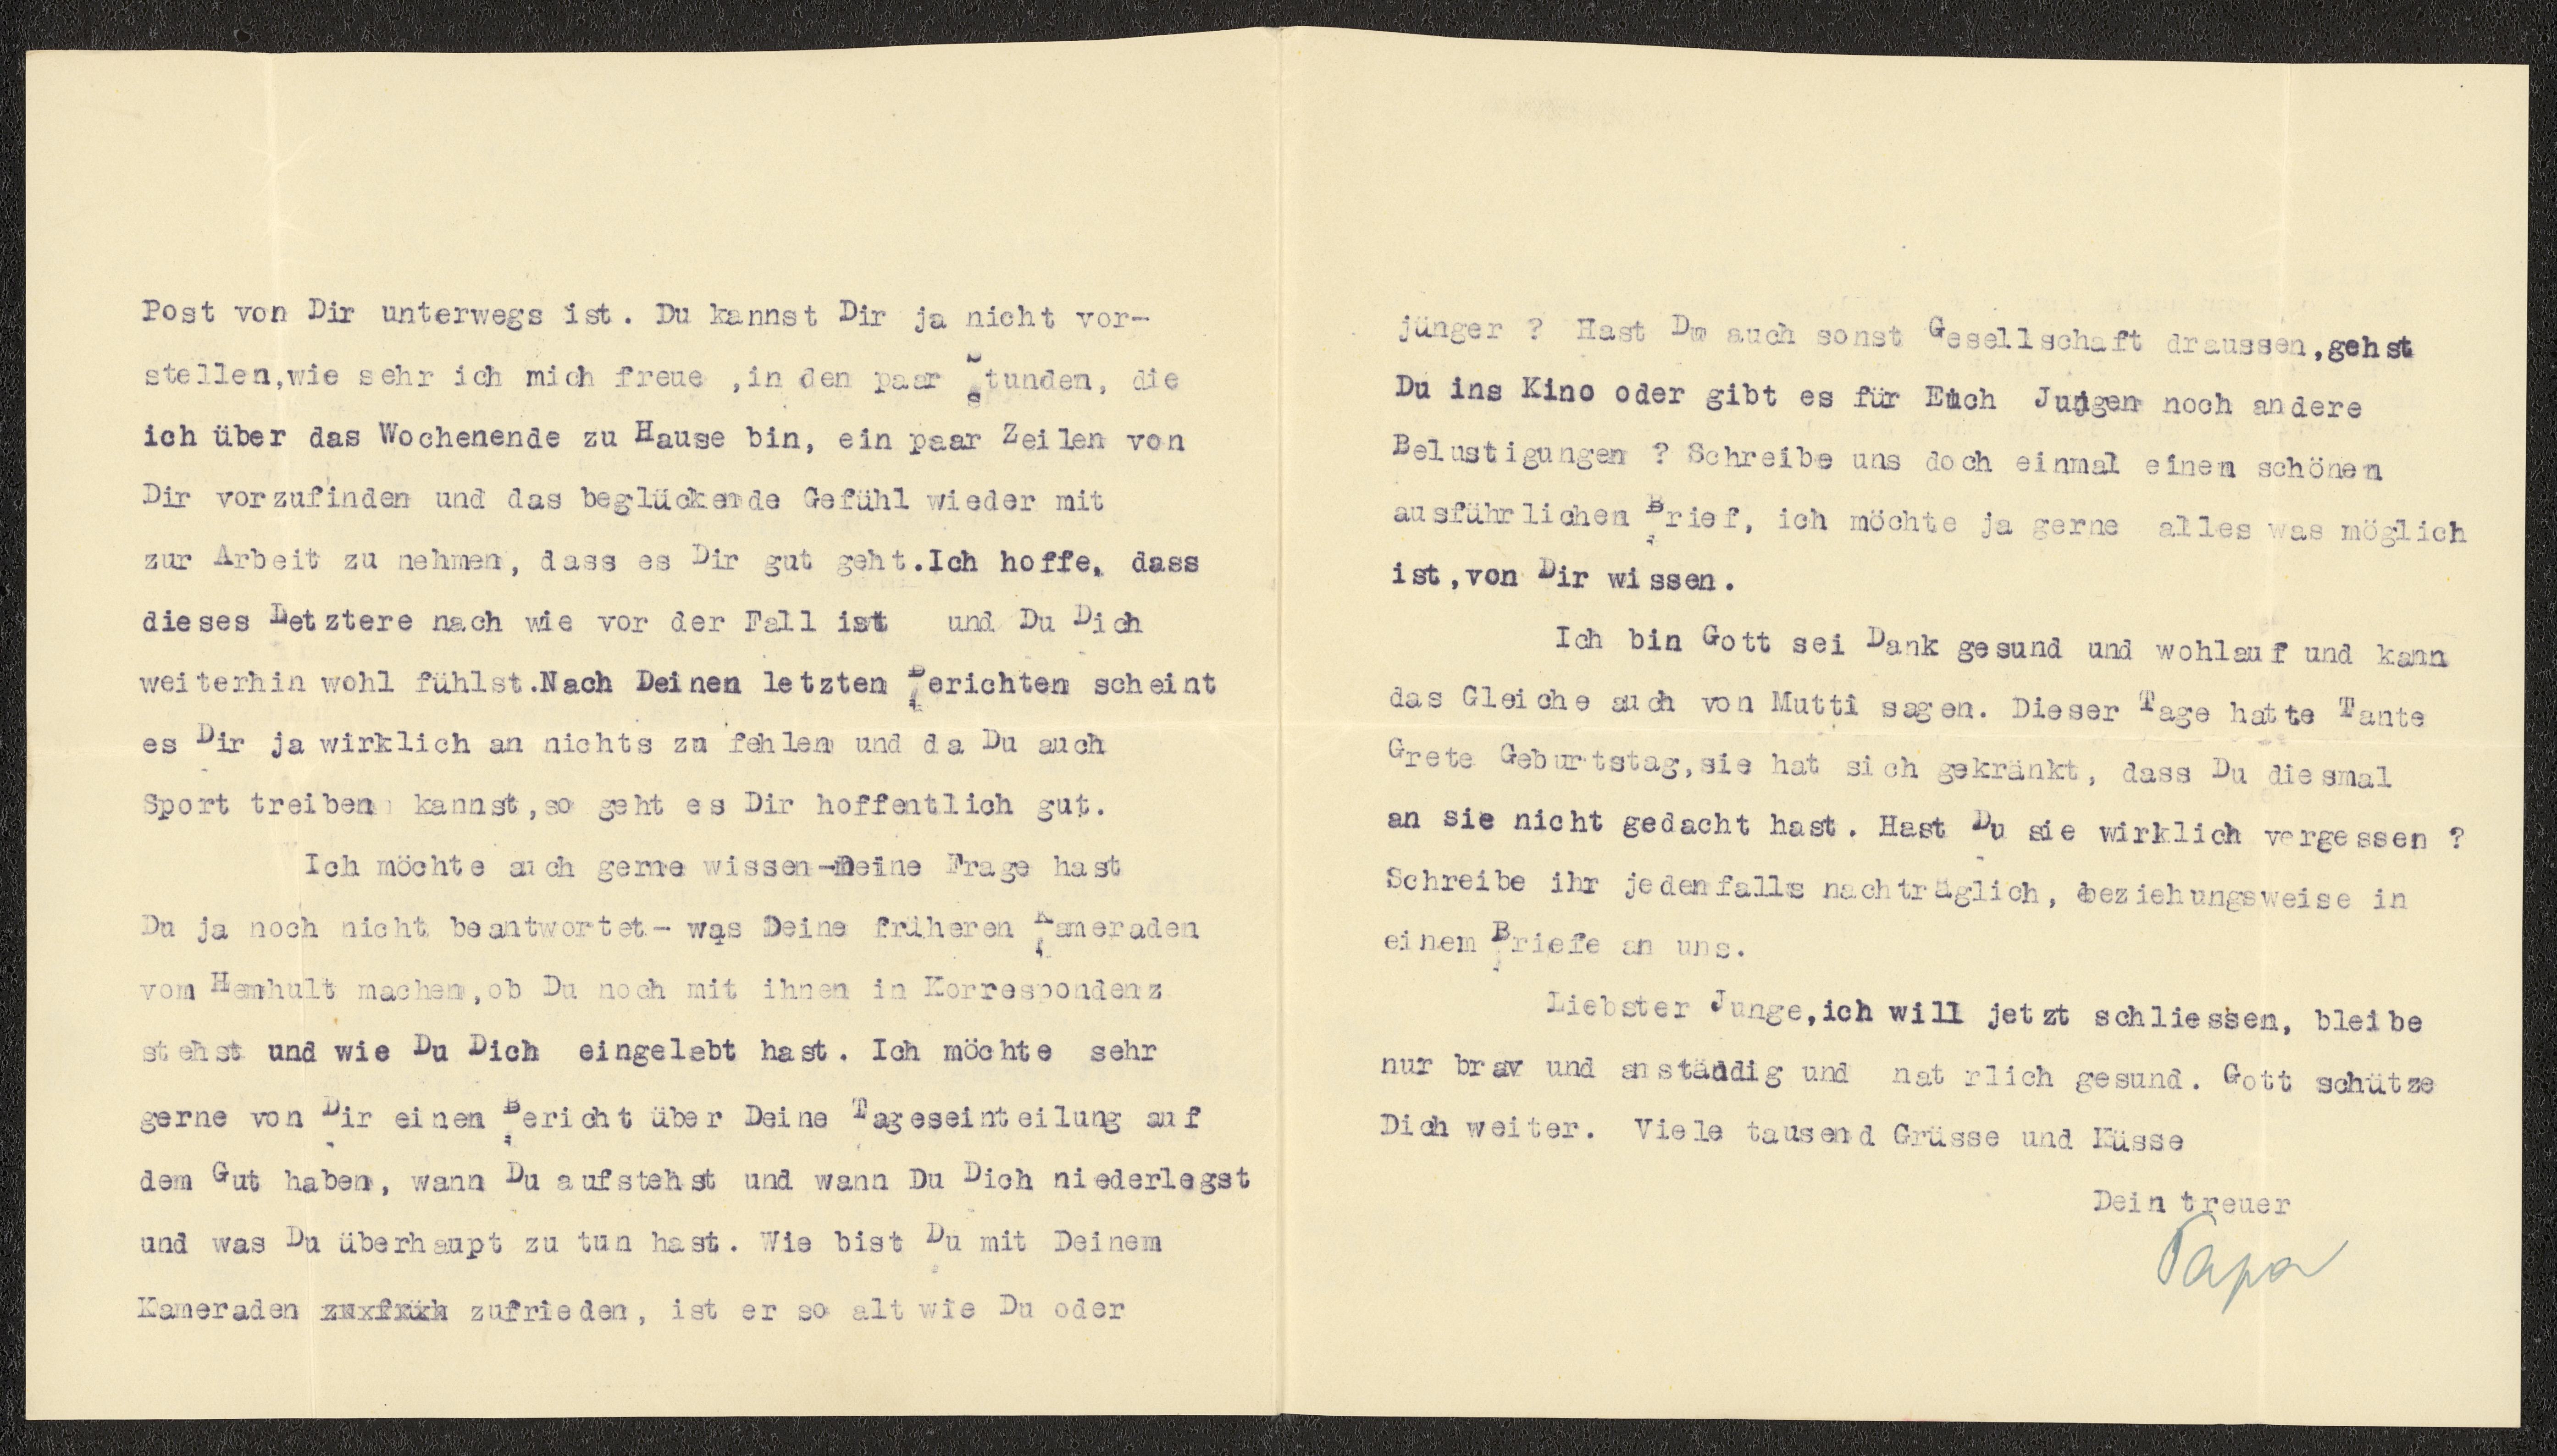 Post von Dir unterwegs ist. Du kannst Dir ja nicht vor-
stellen,wie sehr ich mich freue ,in den paar Stunden, die
ich über das Wochenende zu Hause bin, ein paar Zeilen von
Dir vorzufinden und das beglückende Gefühl wieder mit
zur Arbeit zu nehmen, dass es Dir gut geht.Ich hoffe, dass
dieses Letztere nach wie vor der Fall ist und Du Dich
weiterhin wohl fühlst.Nach Deinen letzten Berichten scheint
es Dir ja wirklich an nichts zu fehlen und da Du auch
Sport treiben kannst,so geht es Dir hoffentlich gut.
Ich möchte auch gerne wissen-meine Frage hast
Du ja noch nicht beantwortet- was Deine früheren Kameraden
vom Hemhult machen,ob Du noch mit ihnen in Korrespondenz
stehst und wie Du Dich eingelebt hast. Ich möchte sehr
gerne von Dir einen Bericht über Deine Tageseinteilung auf
dem Gut haben, wann Du aufstehst und wann Du Dich niederlegst
und was Du überhaupt zu tun hast. Wie bist Du mit Deinem
Kameraden zufrieden, ist er so alt wie Du oder
jünger ? Hast Du auch sonst Gesellschaft draussen,gehst
Du ins Kino oder gibt es für Euch Jungen noch andere
Belustigungen ? Schreibe uns doch einmal einen schönen
ausführlichen Brief, ich möchte ja gerne alles was möglich
ist,von Dir wissen.
Ich bin Gott sei Dank gesund und wohlauf und kann
das Gleiche auch von Mutti sagen. Dieser Tage hatte Tante
Grete Geburtstag,sie hat sich gekränkt, dass Du diesmal
an sie nicht gedacht hast. Hast Du sie wirklich vergessen ?
Schreibe ihr jedenfalls nachträglich, beziehungsweise in
einem Briefe an uns.
Liebster Junge,ich will jetzt schliessen, bleibe
nur brav und anständig und nat rlich gesund. Gott schütze
Dich weiter. Viele tausend Grüsse und Küsse
Dein treuer
Papa